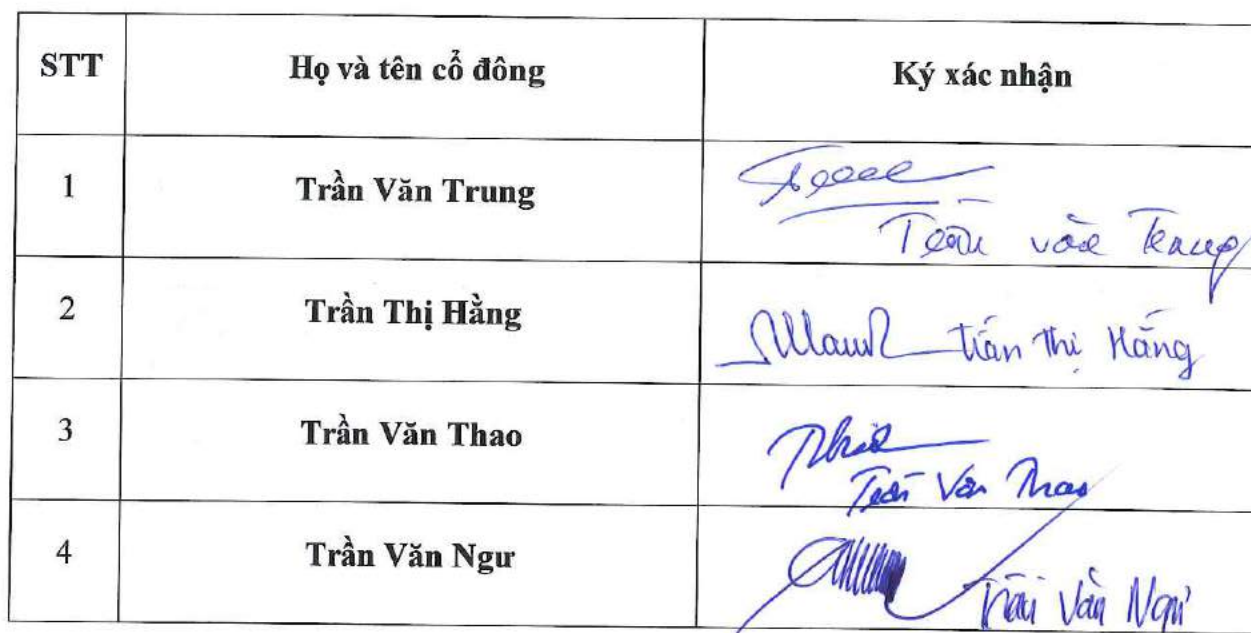 STT Họ và tên cổ đông Ký xác nhận
1 Trần Văn Trung
Trần văn Trung
2 Trần Thị Hằng Trần Thị Hằng
3 Trần Văn Thao
Trần Văn Thao
4 Trần Văn Ngư
Trần Văn Ngư